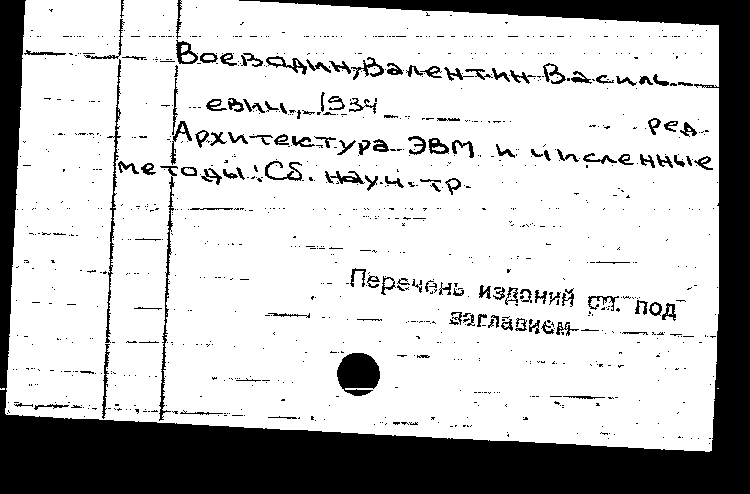 Воеводин, Валентин Василь
евич, 1934
ред.
Архитектура ЭВМ и численные
методы: Сб. науч. тр.
Перечень изданий см. под
заглавием